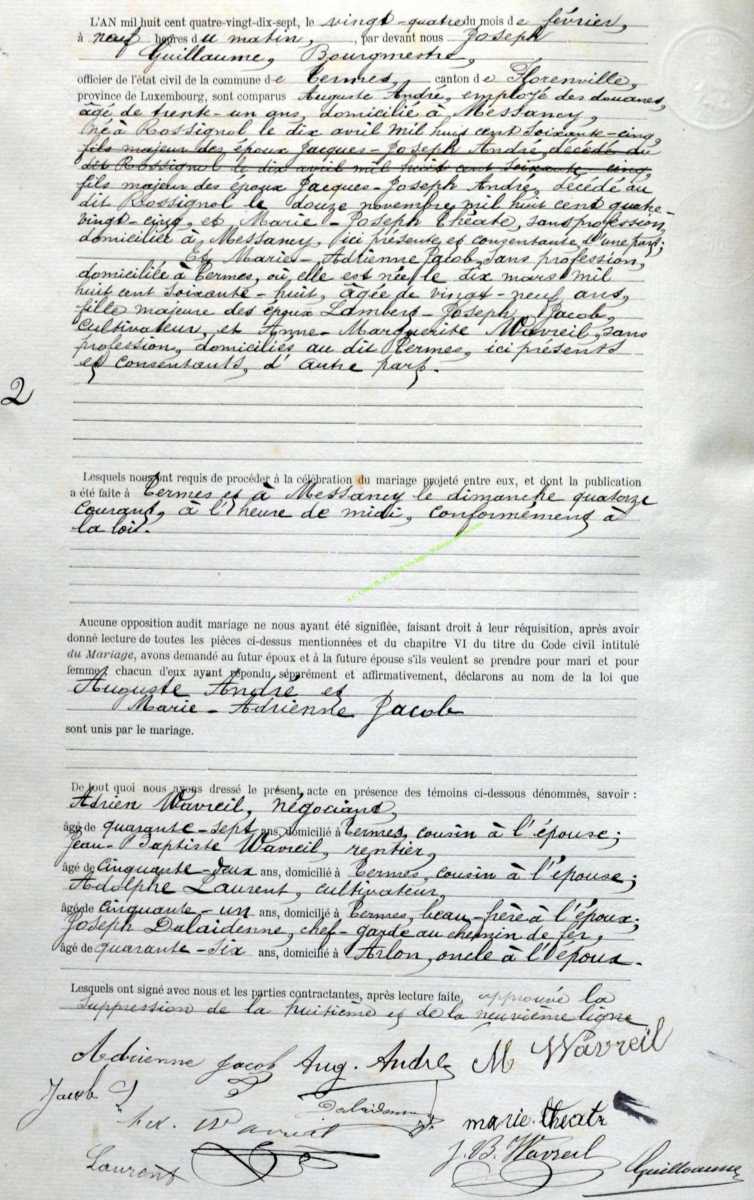 L'AN mil huit cent quatre-vingt-dix-sept, le vingt-quatre du mois de février,
à neuf heures du matin, , par devant nous Joseph
Guillaume, Bourgmestre,
officier de l'état civil de la commune de Termes, canton de Florenville,
province de Luxembourg, sont comparus Auguste André, employé des douanes,
âgé de trente-un ans, domicilié à Messancy,
né à Rossignol le dix avril mil huit cent soixante-cinq,
fils majeur des époux Jacques-Joseph André, décédé au
dit Rossignol le dix avril mil huit cent soixante-cinq,
fils majeur des époux Jacques-Joseph André, décédé au
dit Rossignol le douze novembre mil huit cent quatre-
vingt-cinq, et Marie-Joseph Théate, sans profession,
domiciliée à Messancy, ici présente et consentante d'une part;
Et Marie-Adrienne Jacob, sans profession,
domiciliée à Termes, où elle est née le dix mars mil
huit cent soixante-huit, âgée de vingt-neuf ans,
fille majeure des époux Lambert-Joseph Jacob,
cultivateur, et Anne-Marguerite Wavreil, sans
profession, domiciliés au dit Termes, ici présents
et consentants, d'autre part.
2
Lesquels nous ont requis de procéder à la célébration du mariage projeté entre eux, et dont la publication
a été faite à Termes et à Messancy le dimanche quatorze
courant, à l'heure de midi, conformément à
la loi.
Aucune opposition audit mariage ne nous ayant été signifiée, faisant droit à leur réquisition, après avoir
donné lecture de toutes les pièces ci-dessus mentionnées et du chapitre VI du titre du Code civil intitulé
du Mariage, avons demandé au futur époux et à la future épouse s'ils veulent se prendre pour mari et pour
femme, chacun d'eux ayant répondu séparément et affirmativement, déclarons au nom de la loi que
Auguste André et
Marie-Adrienne Jacob
sont unis par le mariage.
De tout quoi nous avons dressé le présent acte en présence des témoins ci-dessous dénommés, savoir :
Adrien Wavreil, négociant,
âgé de quarante-sept ans, domicilié à Termes, cousin à l'épouse;
Jean-Baptiste Wavreil, rentier,
âgé de cinquante-deux ans, domicilié à Termes, cousin à l'épouse;
Adolphe Laurent, cultivateur,
âgé de cinquante-un ans, domicilié à Termes, beau-frère à l'époux;
Joseph Dalaidenne, chef-garde au chemin de fer,
âgé de quarante-six ans, domicilié à Arlon, oncle à l'époux.
Lesquels ont signé avec nous et les parties contractantes, après lecture faite, approuvé la
suppression de la huitième et de la neuvième ligne
Adrienne Jacob Aug. André M Wavreil
Jacob Dalaidenne marie theatr
Wavreil J. B. Wavreil
Laurent Guillaume